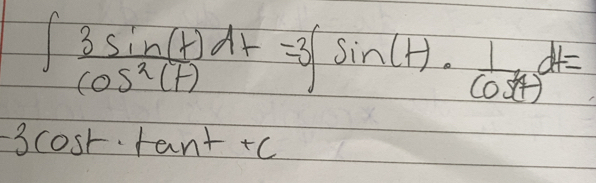 ∫ 3 sin(t) dt / cos²(t) = 3∫ sin(t) · 1/cos²(t) dt =
-3 cost · tant + c